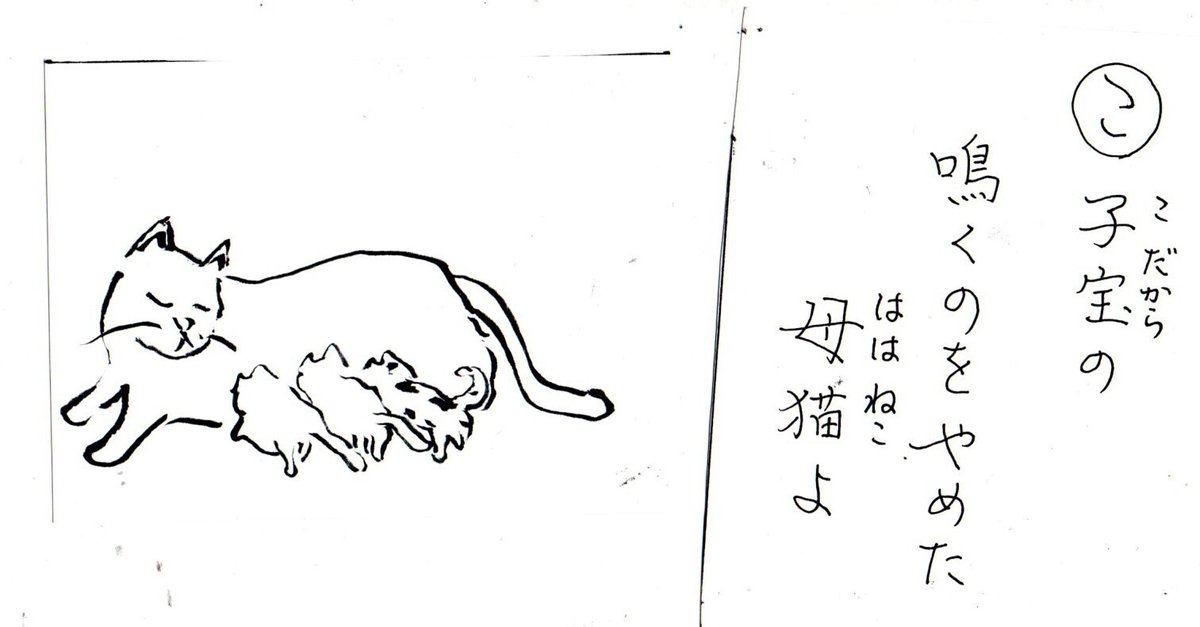 こ
子宝の
こだから
鳴くのをやめた
母猫よ
ははねこ